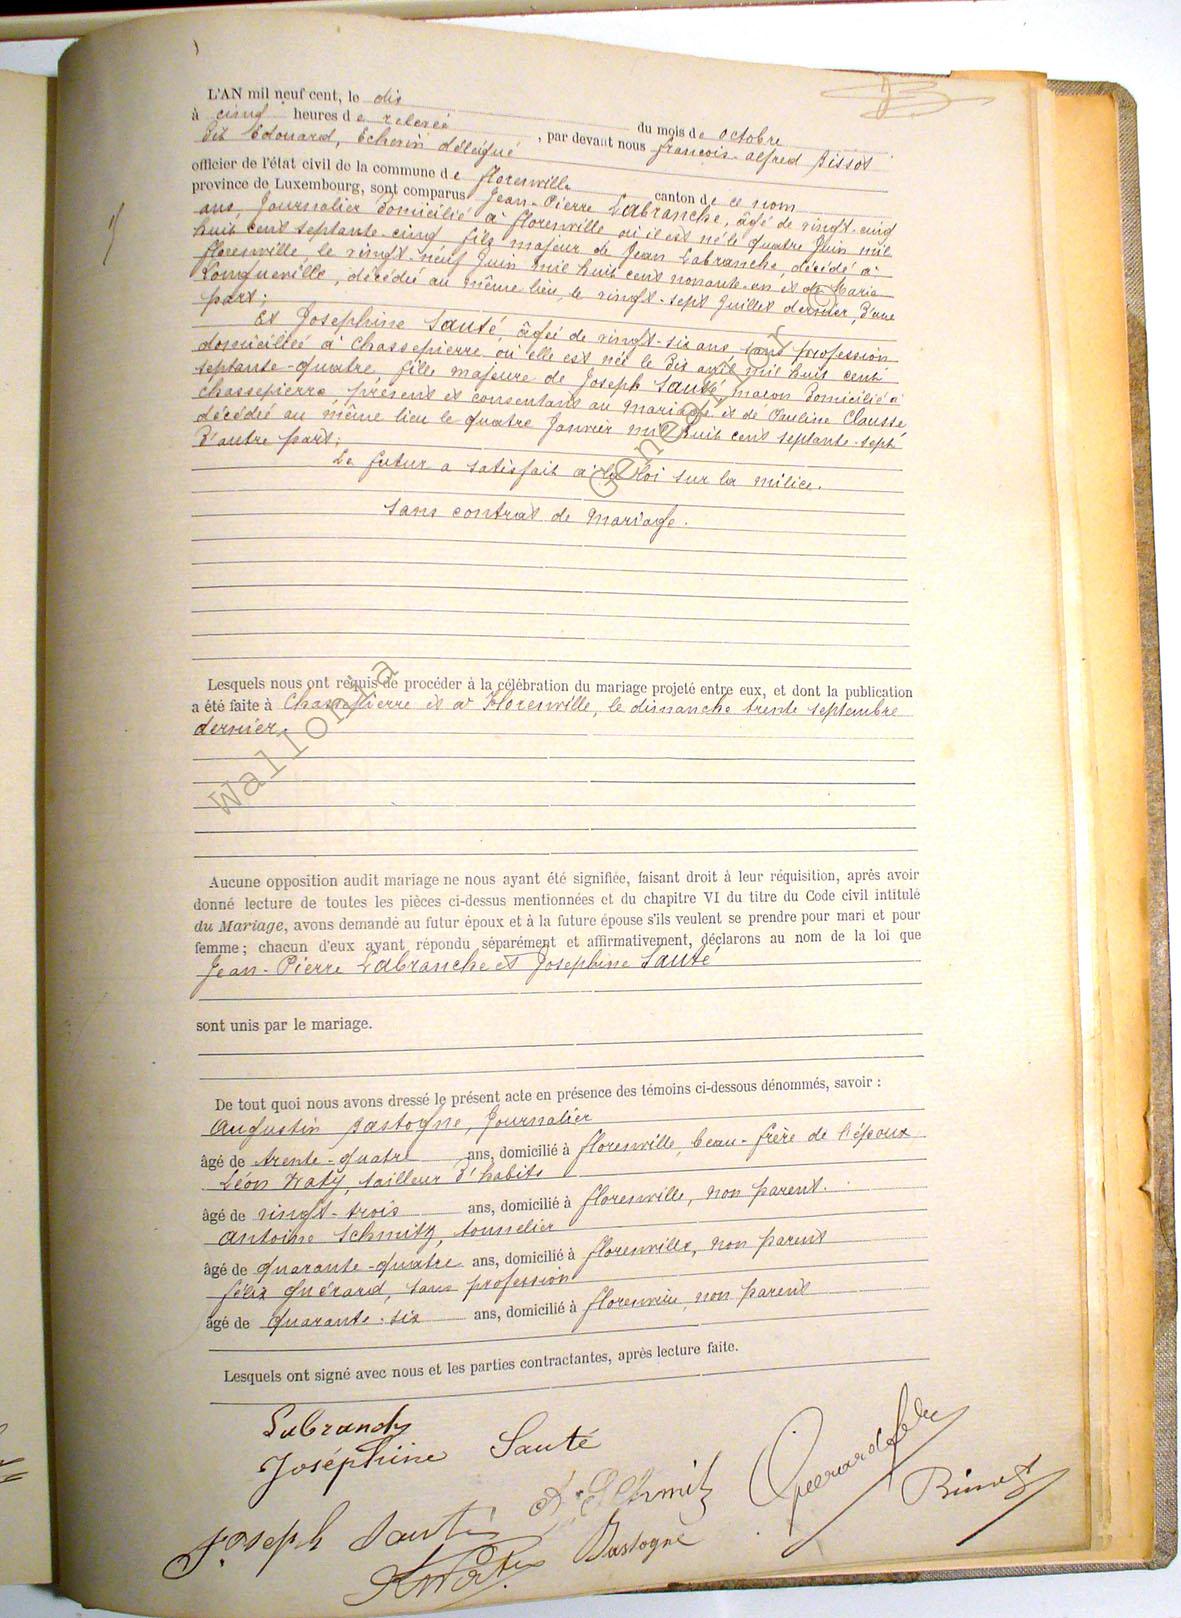 L'AN mil neuf cent, le dix du mois de octobre
à cinq heures de relevée, par devant nous françois-alfred
dit Edouard, Echevin délégué
officier de l'état civil de la commune de florenville canton de ce nom
province de Luxembourg, sont comparus Jean-Pierre Labranche, âgé de vingt-cinq
ans, Journalier domicilié à florenville où il est né le quatre Juin mil
huit cent septante-cinq fils majeur de Jean Labranche, décédé à
florenville, le vingt-neuf Juin mil huit cent nonante-un et de Marie
Longueville, décédée au même lieu, le vingt-sept Juillet dernier, d'une
part;
Et Josephine Sauté, âgée de vingt-six ans, sans profession
domiciliée à Chassepierre où elle est née le dix avril mil huit cent
septante-quatre, fille majeure de Joseph Sauté, maçon domicilié à
Chassepierre, présent et consentant au mariage et de Pauline Clausse,
décédée au même lieu le quatre Janvier mil huit cent septante-sept
d'autre part;
Le futur a satisfait à la loi sur la milice.
Sans contrat de mariage.
Lesquels nous ont requis de procéder à la célébration du mariage projeté entre eux, et dont la publication
a été faite à Chassepierre et à Florenville, le dimanche trente septembre
dernier.
Aucune opposition audit mariage ne nous ayant été signifiée, faisant droit à leur réquisition, après avoir
donné lecture de toutes les pièces ci-dessus mentionnées et du chapitre VI du titre du Code civil intitulé
du Mariage, avons demandé au futur époux et à la future épouse s'ils veulent se prendre pour mari et pour
femme; chacun d'eux ayant répondu séparément et affirmativement, déclarons au nom de la loi que
Jean-Pierre Labranche et Josephine Sauté
sont unis par le mariage.
De tout quoi nous avons dressé le présent acte en présence des témoins ci-dessous dénommés, savoir :
Augustin Bastogne, Journalier
âgé de trente-quatre ans, domicilié à florenville, beau-frère de l'époux
Léon Watiz, tailleur d'habits
âgé de vingt-trois ans, domicilié à florenville, non parent.
Antoine Schmitz, tonnelier
âgé de quarante-quatre ans, domicilié à florenville, non parent
félix Guérard, sans profession
âgé de quarante-six ans, domicilié à florenville, non parent
Lesquels ont signé avec nous et les parties contractantes, après lecture faite.
Labranche
Joséphine Sauté
A. Schmitz
Guerard félix
Joseph Sauté
Bastogne
© Wallonia Genealogy